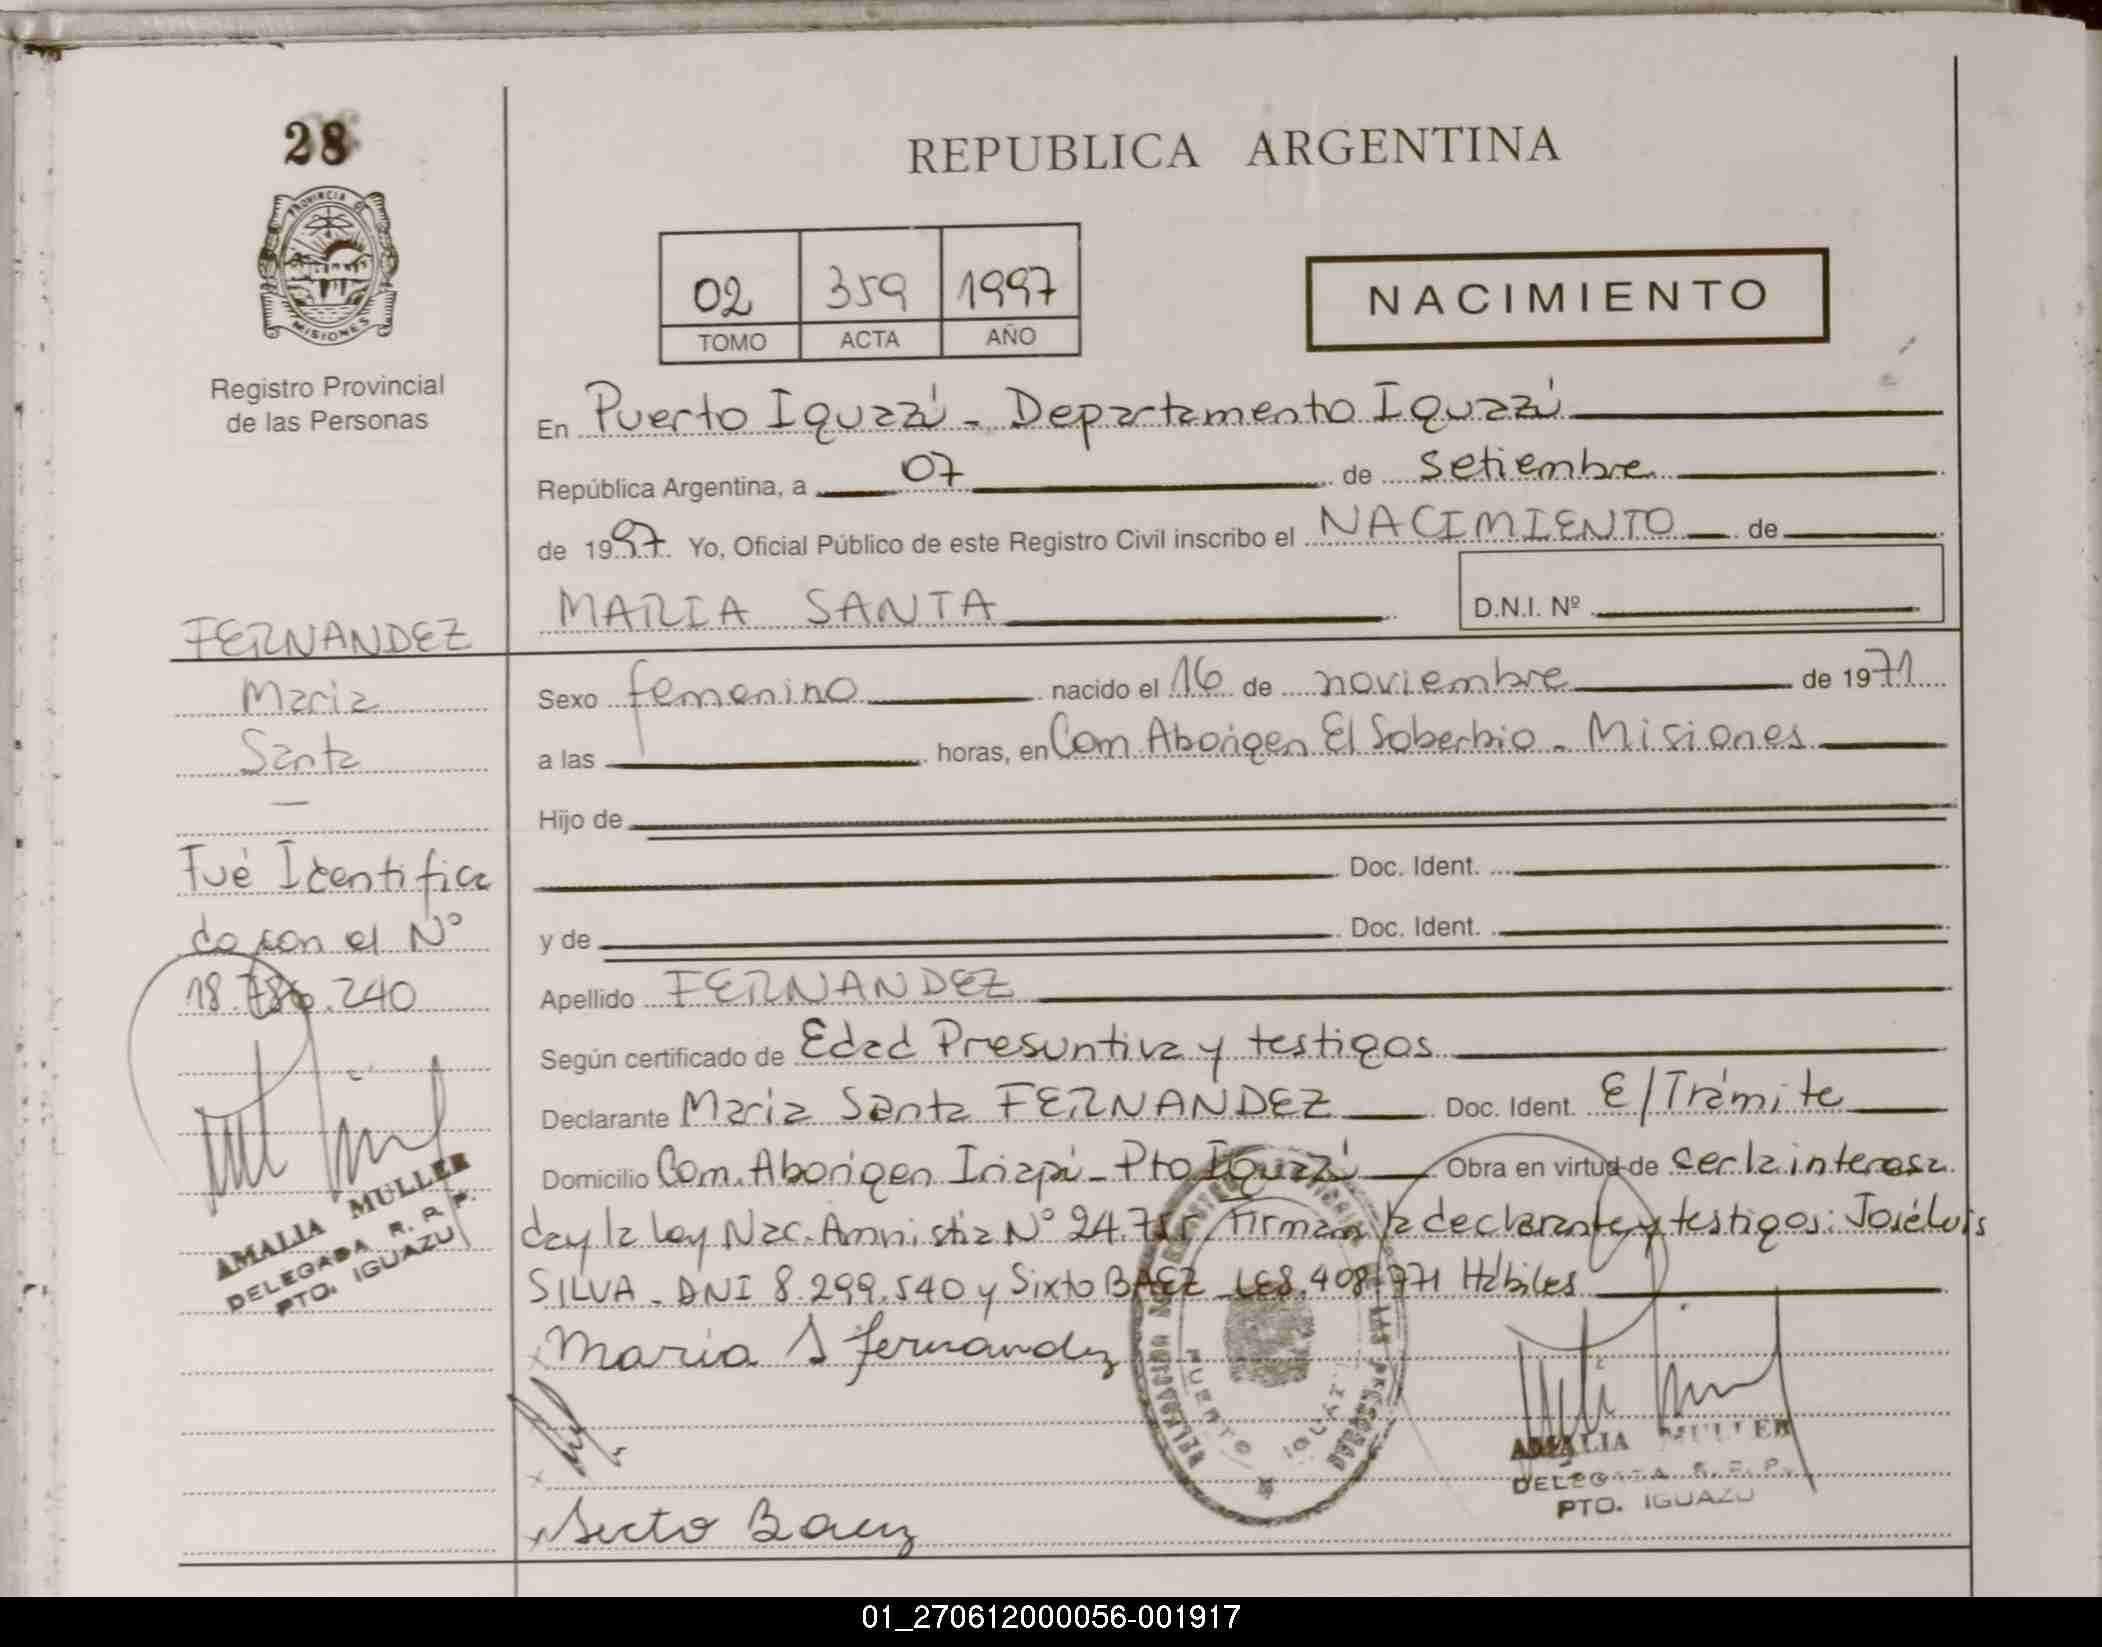 28
PROVINCIA DE
MISIONES
Registro Provincial
de las Personas
FERNANDEZ
Maria
Santa
—
Fué Identifica
do con el N°
18.786.240
AMALIA MULLER
DELEGADA R. P. P.
PTO. IGUAZU
REPUBLICA ARGENTINA
02 359 1997
TOMO ACTA AÑO
NACIMIENTO
En Puerto Iguazú - Departamento Iguazú
República Argentina, a 07 de setiembre
de 1997. Yo, Oficial Público de este Registro Civil inscribo el NACIMIENTO de
MARIA SANTA D.N.I. Nº
Sexo femenino nacido el 16 de noviembre de 1971
a las horas, en Com Aborigen El Soberbio - Misiones
Hijo de
Doc. Ident.
y de Doc. Ident.
Apellido FERNANDEZ
Según certificado de Edad Presuntiva y testigos
Declarante Maria Santa FERNANDEZ Doc. Ident. E/Trámite
Domicilio Com. Aborigen Iriapú - Pto Iguazú Obra en virtud de ser la interesa
da y la Ley Nac. Amnistia N° 24.755 Firman la declarante y testigos: José Luis
SILVA - DNI 8.299.540 y Sixto BAEZ - LE 8.408.771 Hábiles
x Maria S Fernandez
x
x Sixto Baez
DELEGACION REGISTRO PROVINCIAL DE LAS PERSONAS
PUERTO IGUAZU
AMALIA MULLER
DELEGADA R. P. P.
PTO. IGUAZU
01_270612000056-001917